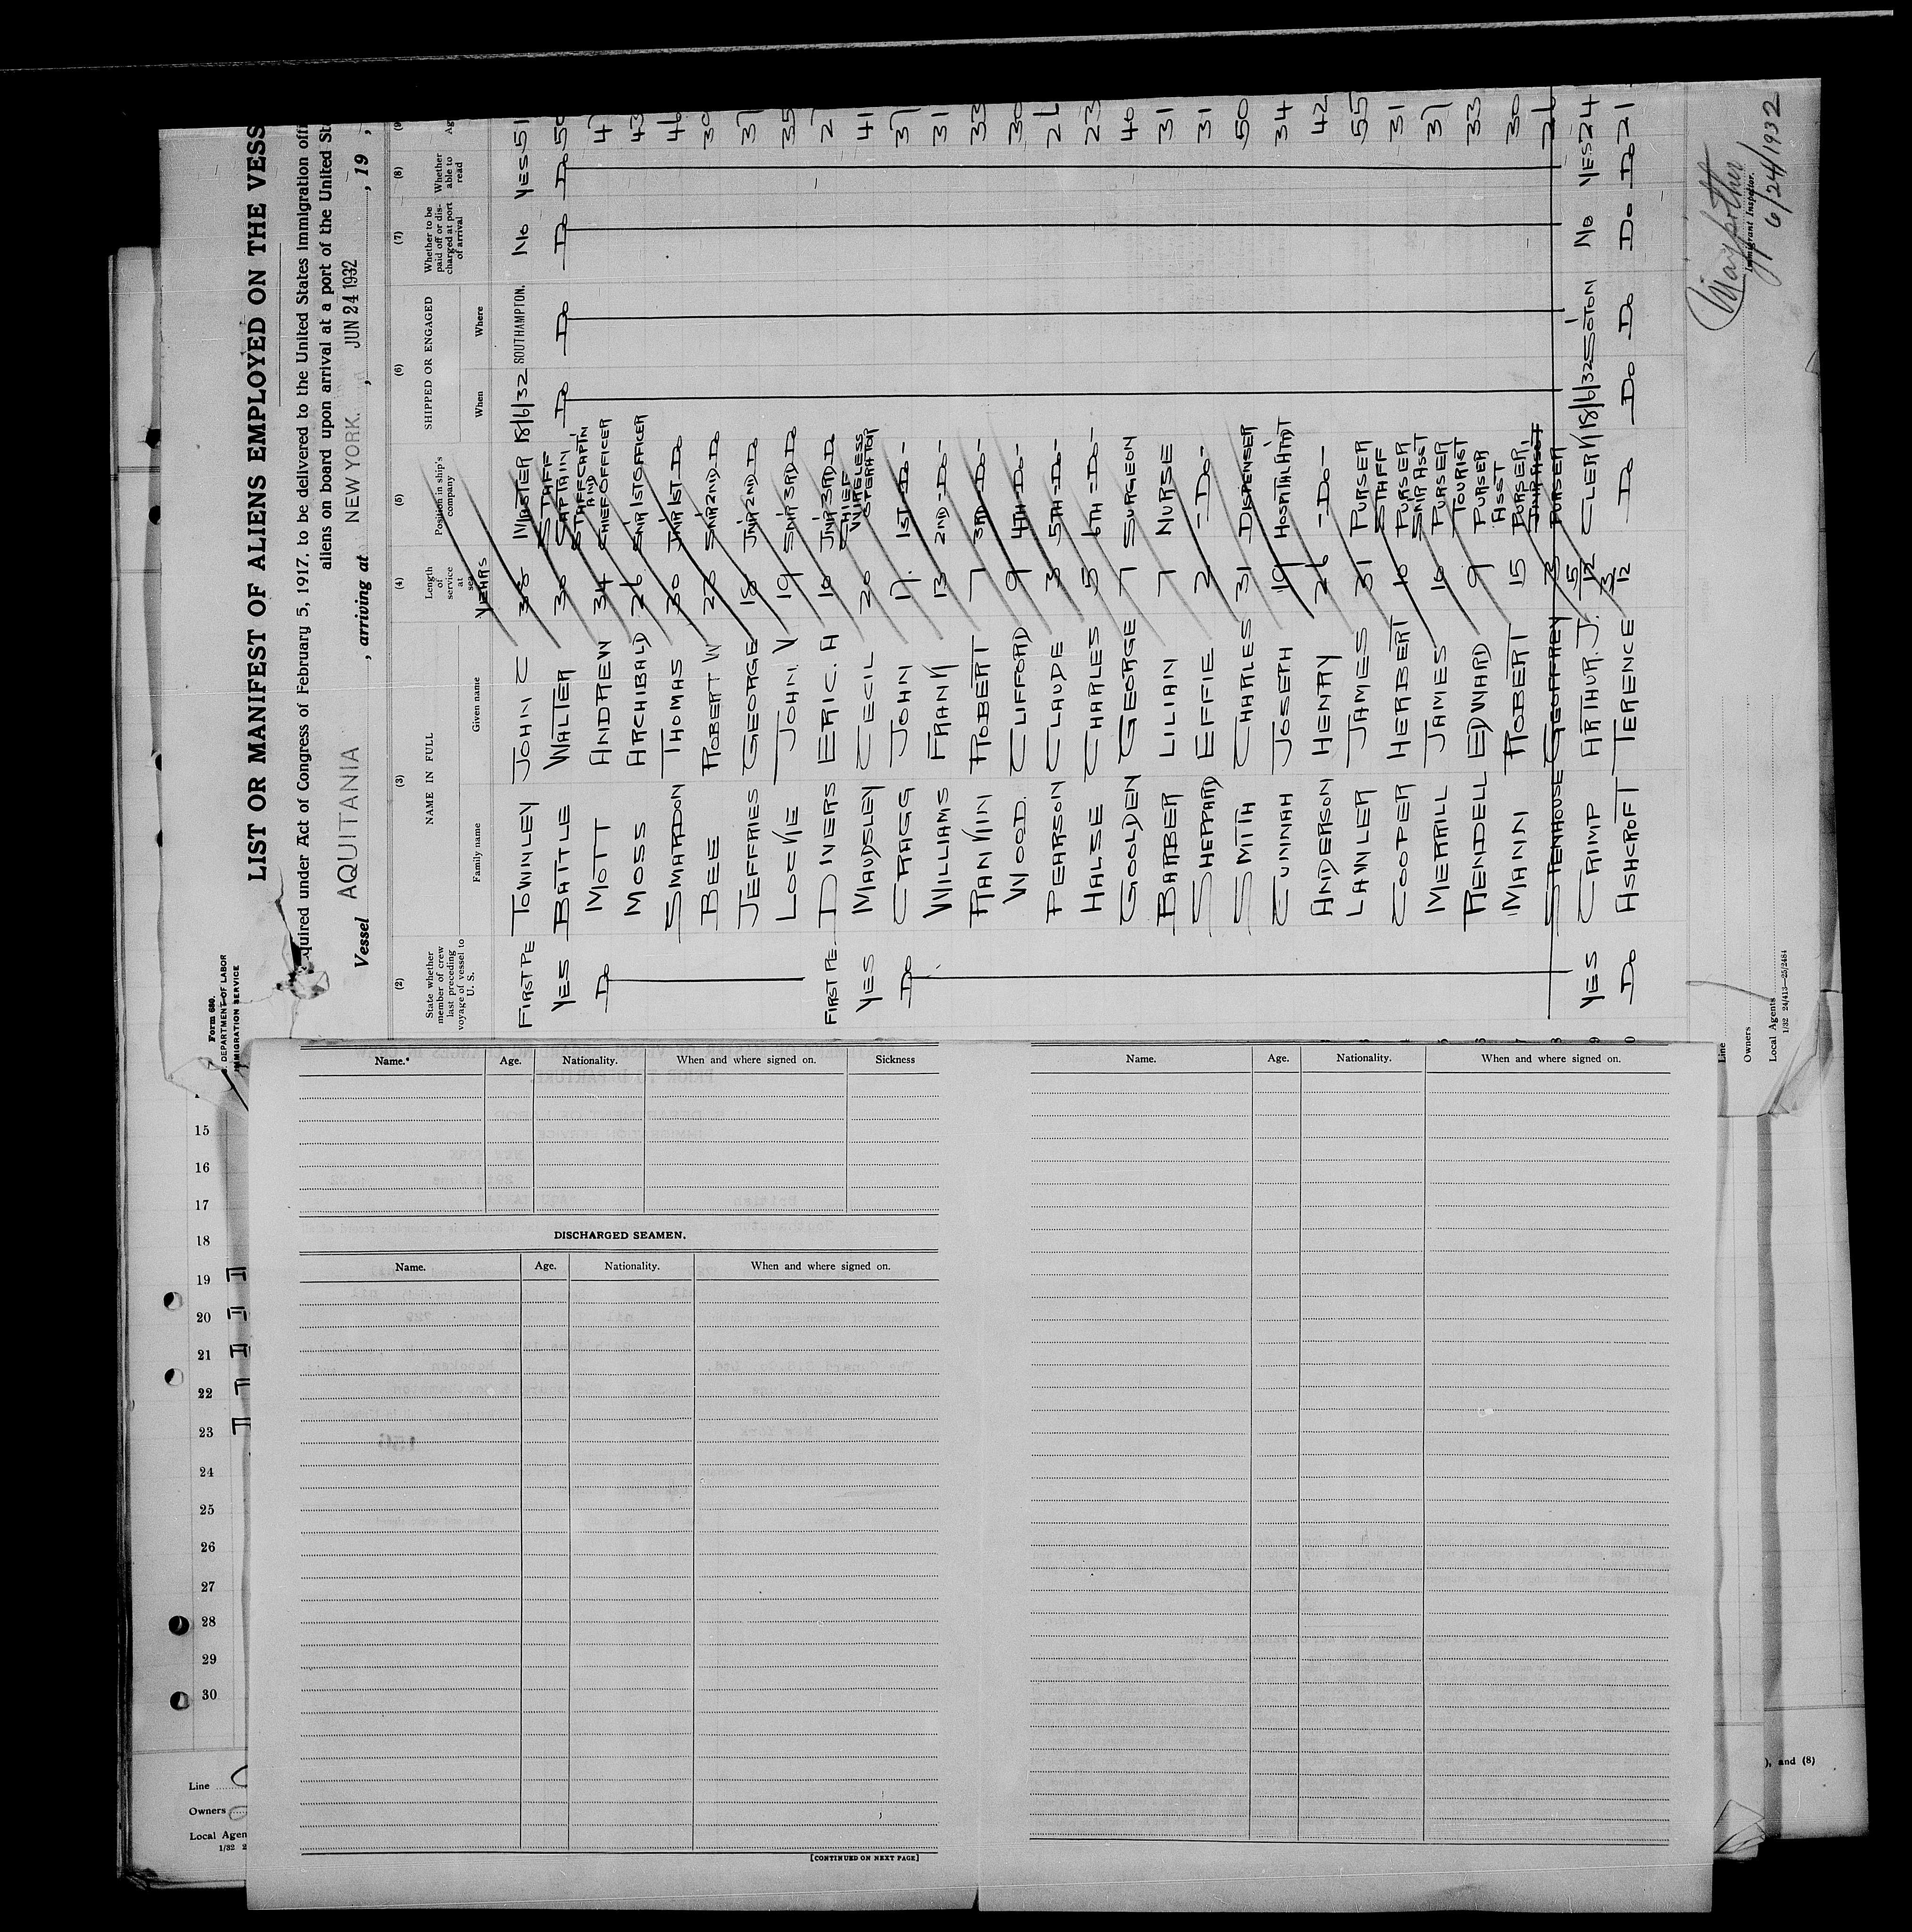 Form 680.
DEPARTMENT OF LABOR
IMMIGRATION SERVICE
LIST OR MANIFEST OF ALIENS EMPLOYED ON THE VESS
quired under Act of Congress of February 5, 1917, to be delivered to the United States immigration offi
aliens on board upon arrival at a port of the United St
Vessel AQUITANIA, arriving at NEW YORK., JUN 24 1932, 19 ,
(2) (3) (4) (5) (6) (7) (8) (9
State whether member of crew last preceding voyage of vessel to U. S.
NAME IN FULL
Family name Given name
Length of service at sea
YEARS
Position in ship's company
SHIPPED OR ENGAGED
When Where
Whether to be paid off or discharged at port of arrival
Whether able to read
Ag
FIRST PE TOWNLEY JOHN C 38 MASTER 18/6/32 SOUTHAMPTON. NO YES 51
YES BATTLE WALTER 30 STAFF CAPTAIN DO DO DO DO 50
DO MOTT ANDREW 34 STAFF CAPTIN AND CHIEF OFFICER 4
MOSS ARCHIBALD 26 SNR 1ST OFFICER 43
SMARDON THOMAS 30 JNR 1ST DO 46
BEE ROBERT W 22 SNR 2ND DO 39
JEFFRIES GEORGE 18 JNR 2ND DO 37
LOCKE JOHN. V 19 SNR 3RD DO 35
FIRST PE. DIVERS ERIC. A 10 JNR 3RD DO 2
YES MAUDSLEY CECIL 20 CHIEF WIRELESS OPERATOR 41
DO CRAGG JOHN 17. 1ST - DO - 37
WILLIAMS FRANK 13 2ND - DO - 31
RANKIN ROBERT 7 3RD - DO - 33
WOOD. CLIFFORD 9 4TH - DO - 30
PEARSON CLAUDE 3 5TH - DO - 26
HALSE CHARLES 5 6TH - DO - 23
GOOLDEN GEORGE 7 SURGEON 40
BARBER LILIAN 7 NURSE 31
SHEPPARD EFFIE 2 - DO - 31
SMITH CHARLES 31 DISPENSER 50
CUNNAH JOSEPH 19 HOSPITAL ATTDT 34
ANDERSON HENRY 26 - DO - 42
LAWLER JAMES 31 PURSER 55
COOPER HERBERT 10 STAFF PURSER 31
MERRILL JAMES 16 SNR ASST PURSER 37
RENDELL EDWARD 9 TOURIST PURSER 33
MANN ROBERT 15 ASST PURSER 30
STENHOUSE GEOFFREY 3 JNR ASST PURSER 26
YES CRIMP ARTHUR. J. 5/12 CLERK 18/6/32 SOTON NO YES 24
DO ASHCROFT TERENCE 3/12 DO DO DO DO DO 21
Immigrant Inspector.
6/24/1932
Line
Owners
Local Agents
1/32 24/413—25/2484
Name. Age. Nationality. When and where signed on. Sickness
DISCHARGED SEAMEN.
Name. Age. Nationality. When and where signed on.
[CONTINUED ON NEXT PAGE]
Name. Age. Nationality. When and where signed on.
15
16
17
18
19
20
21
22
23
24
25
26
27
28
29
30
Line
Owners
Local Agen
1/32 2
), and (8)